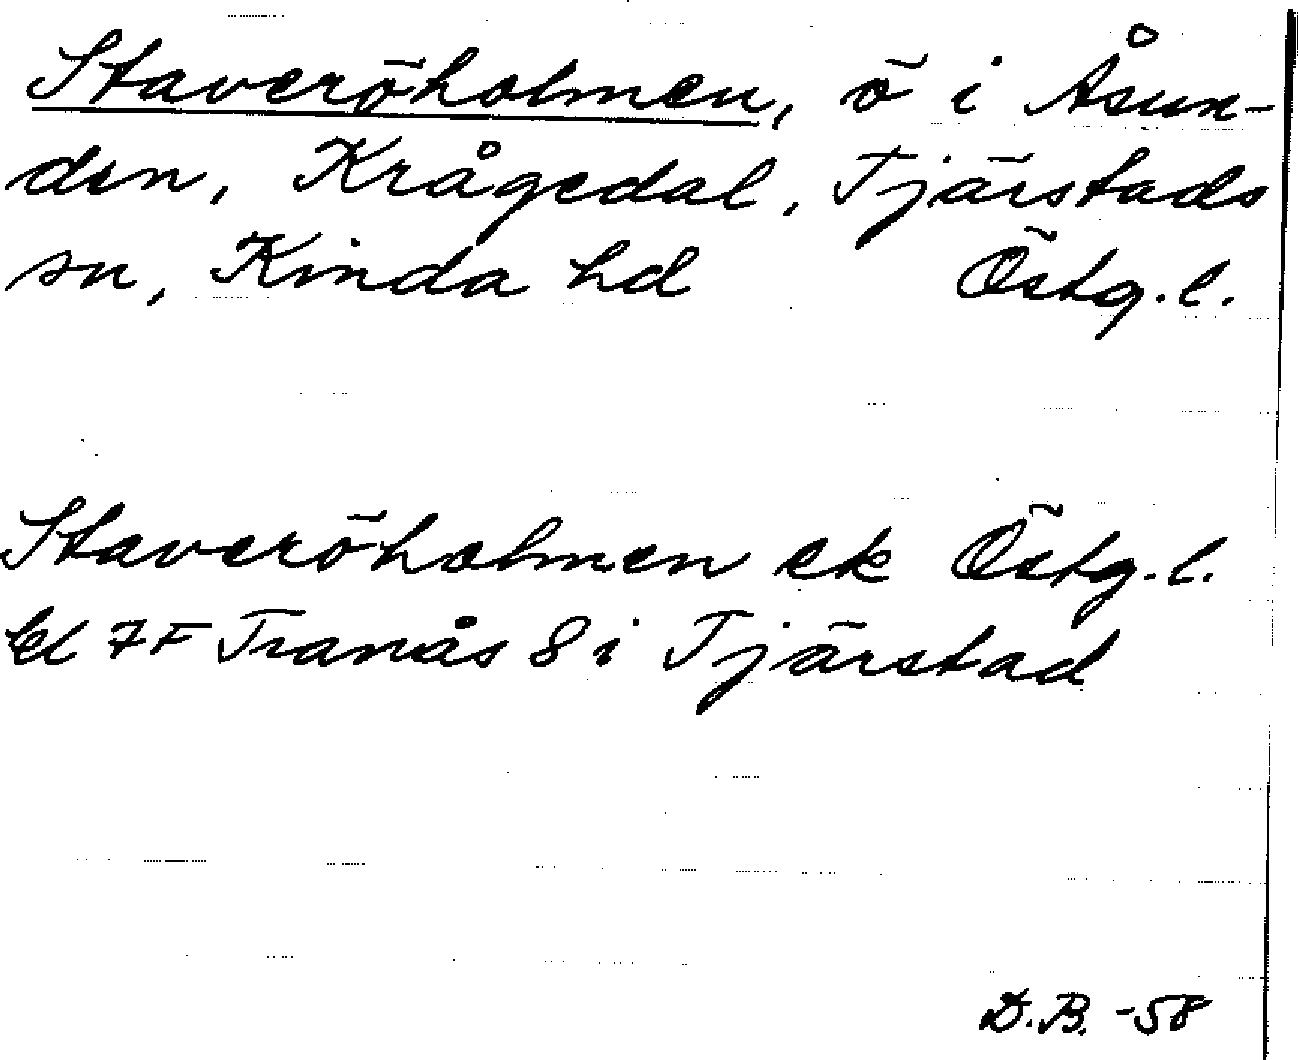 Staveröholmen, ö i Åsun-
den, Krågedal, Tjärstads
sn, Kinda hd Östg. l.
Staveröholmen ek Östg. l.
bl 7F Tranås 8 i Tjärstad
D.B. -58